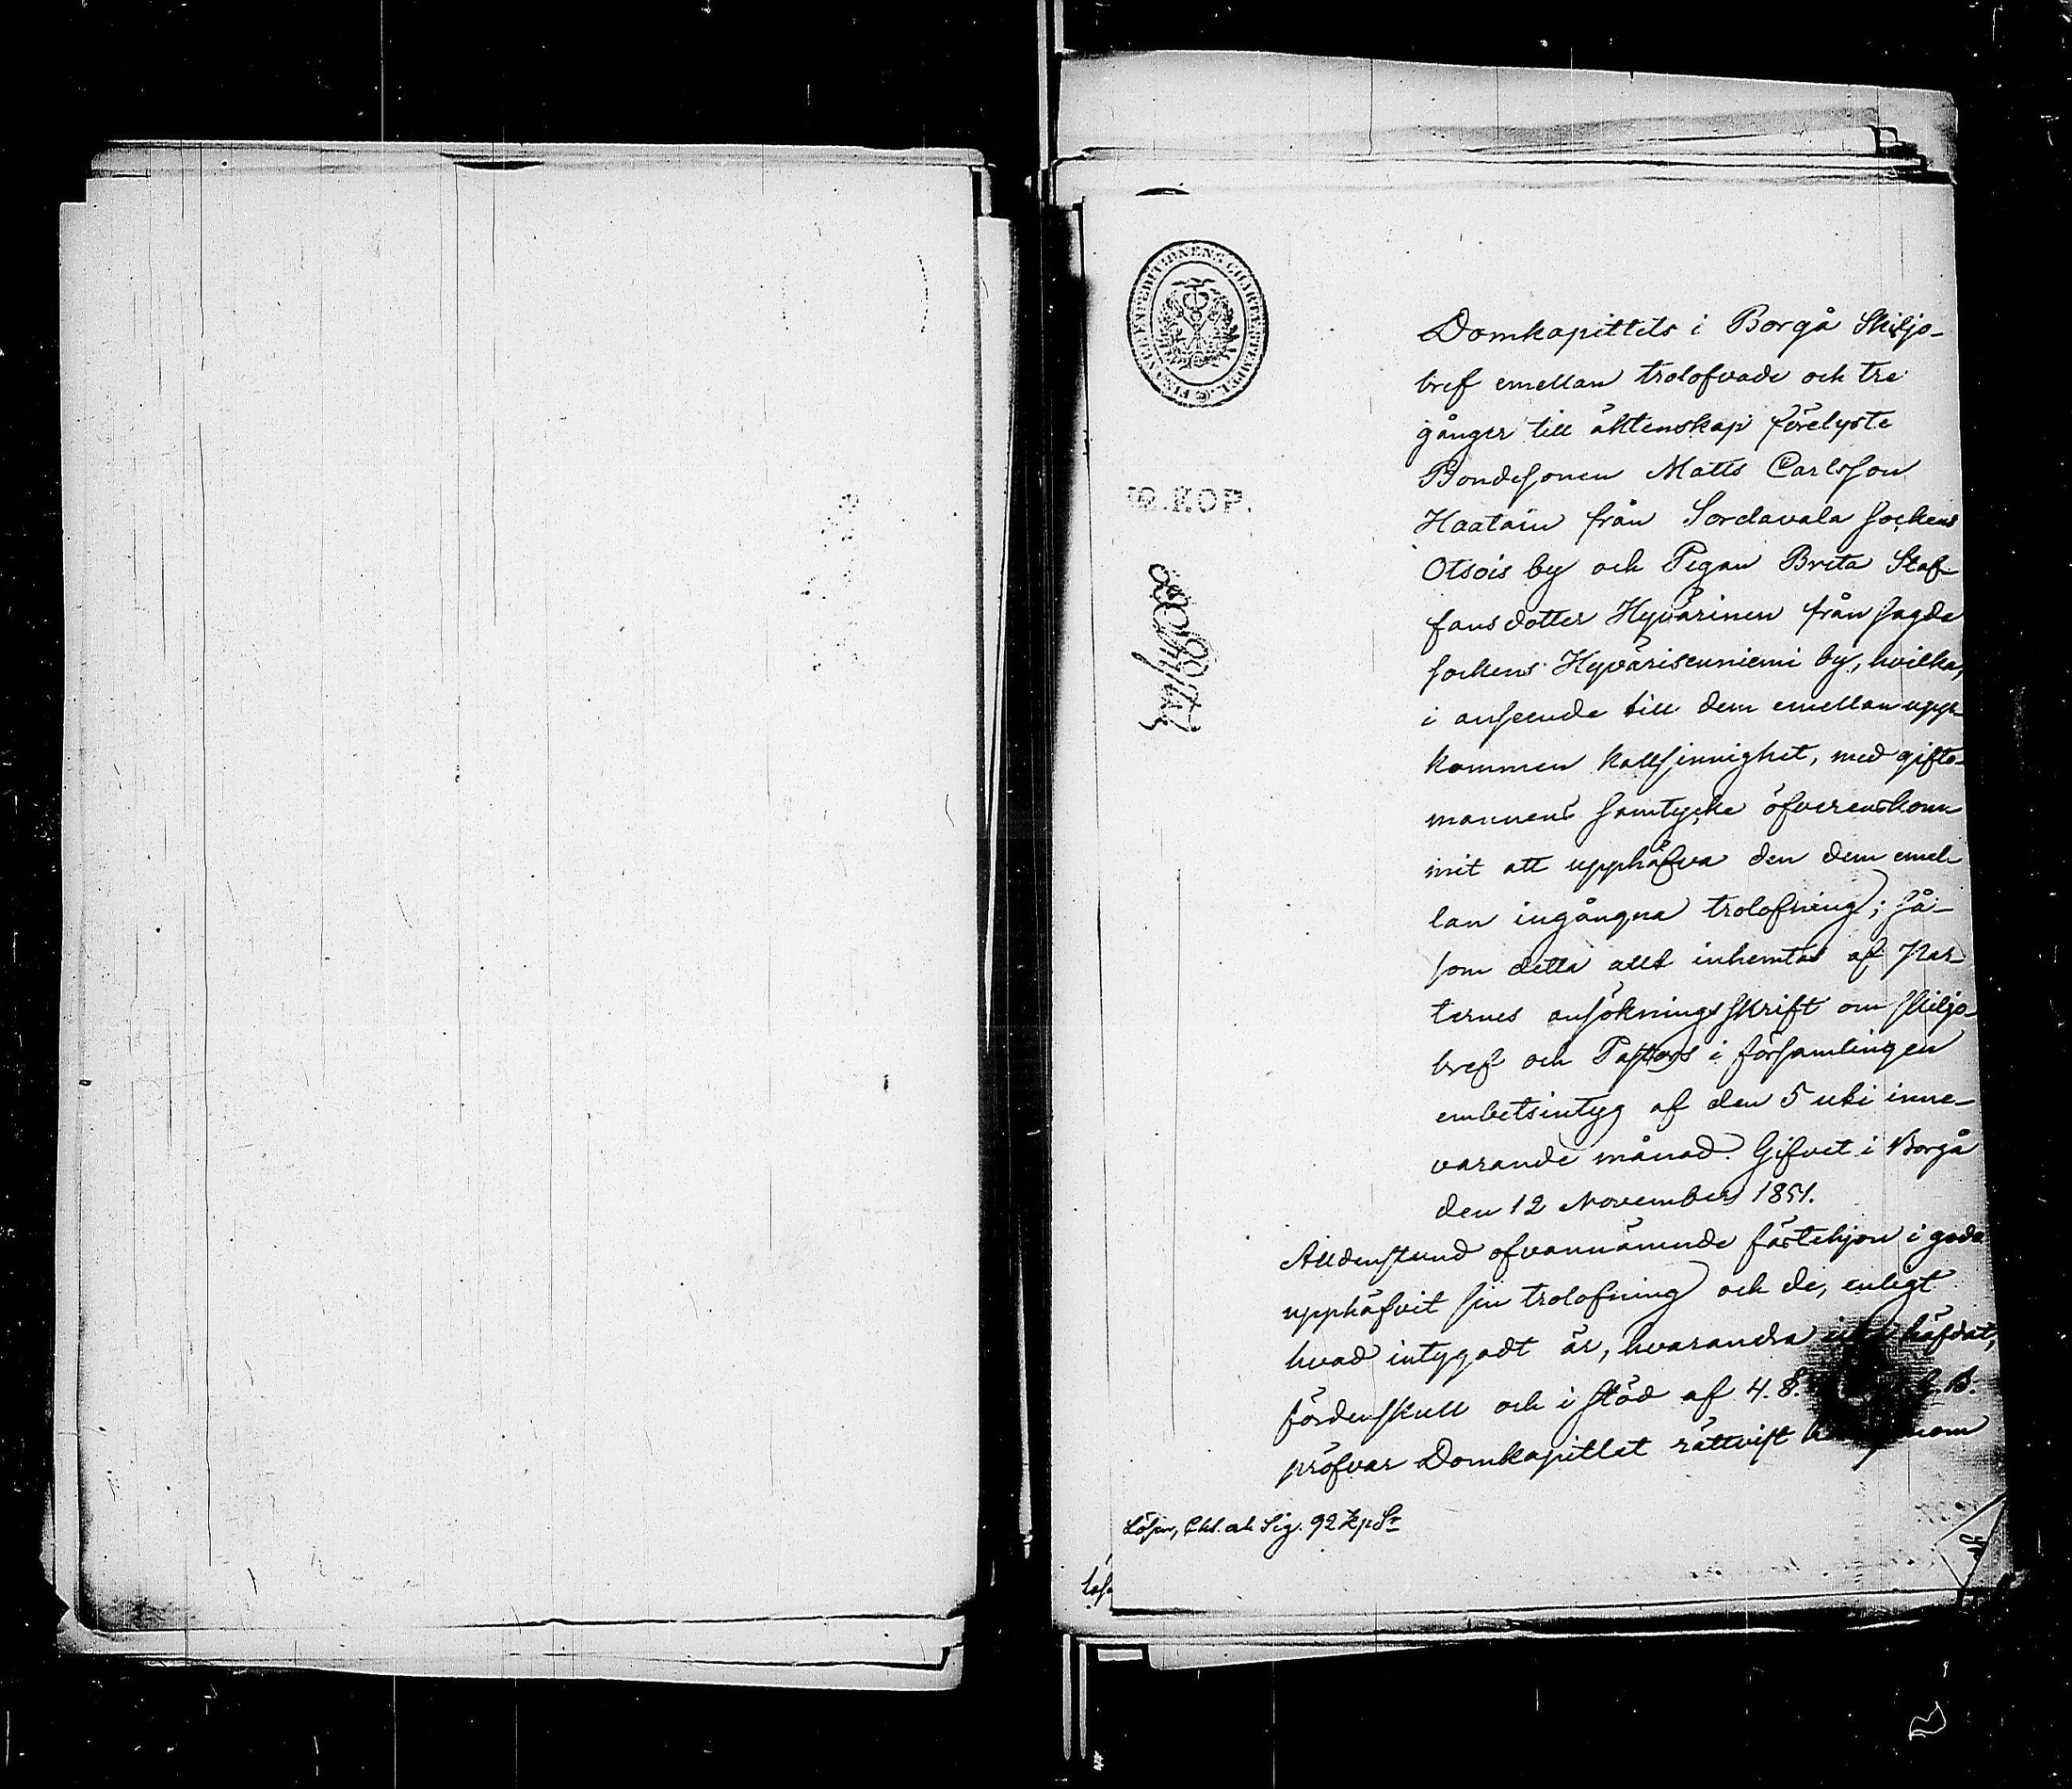 FINANCE EXPEDITIONENS CHARTÆ STEMPEL
KOP.
Domkapitlets i Borgå Skiljo-
bref emellan trolofvade och tre
gånger till äktenskap förelyste
Bondesonen Matts Carlsson
Haatain från Sordavala sockens
Otsois by och Pigan Brita Staf-
fansdotter Hyvärinen från sagde
sockens Hyvärisenniemi by, hvilka,
i anseende till dem emellan upp-
kommen kallsinnighet, med gifto-
mannens samtycke öfverenskom-
mit att upphäfva den dem emel-
lan ingångna trolofning; så-
som detta allt inhemtas af Par-
ternes ansökningsskrift om skiljo-
bref och Pastors i församlingen
embetsintyg af den 5 uti inne-
varande månad. Gifvet i Borgå
den 12 November 1851.
Alldenstund ofvannämnde fästehjon i godo
upphäfvit sin trolofning och de, enligt
hvad intygadt är, hvarandra icke häfdat,
fördenskull och i stöd af 4. §. G. B.
pröfvar Domkapitlet rättvist
Lösen, Chl. och Sig. 92 kp Sr